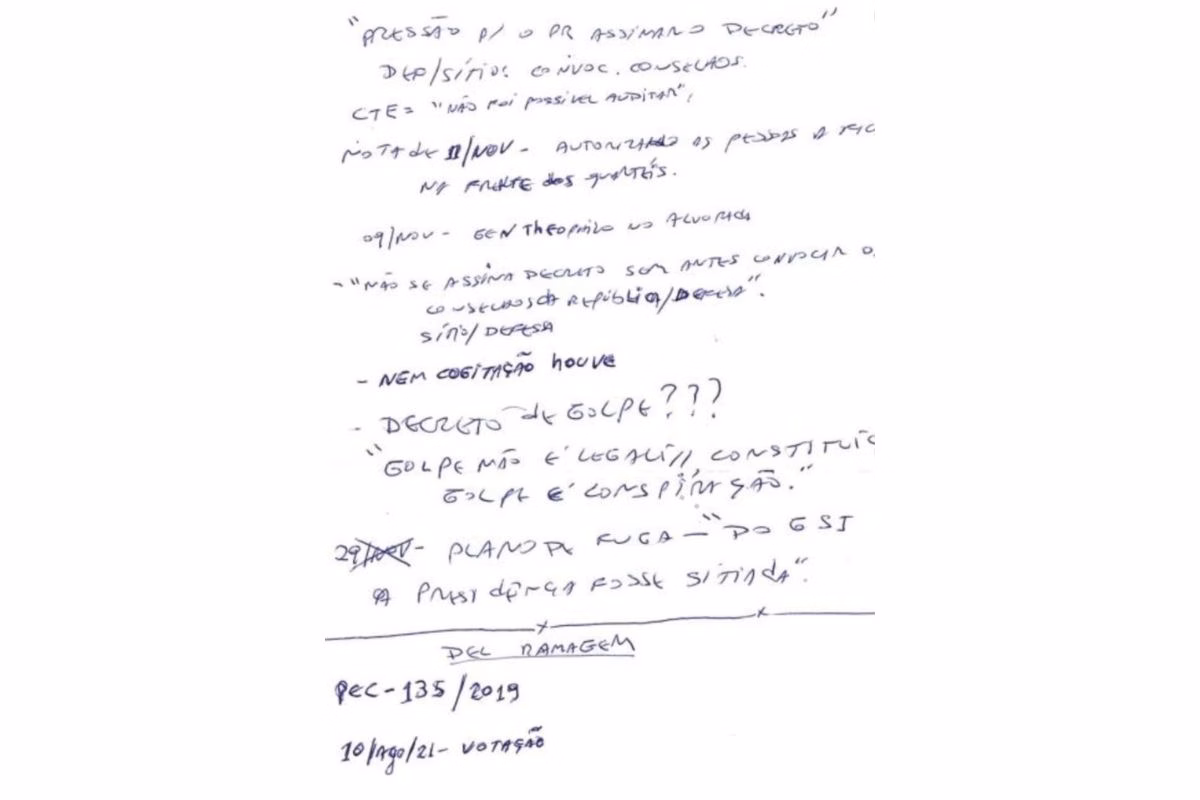 "PRESSÃO P/ O PR ASSINAR O DECRETO"
DEF/SÍTIO: CONVOC. CONSELHOS.
CTE = "NÃO FOI POSSÍVEL AUDITAR",
NOTA de 11/NOV - AUTORIZANDO AS PESSOAS A FIC
NA FRENTE dos QUARTÉIS.
09/NOV - GEN THEOPHILO NO ALVORADA
- "NÃO SE ASSINA DECRETO SEM ANTES CONVOCAR O
CONSELHOS dA REPÚBLICA/DEFESA".
SÍTIO/DEFESA
- NEM COGITAÇÃO HOUVE
- DECRETO de GOLPE???
"GOLPE NÃO É LEGAL/ CONSTITUIC
GOLPE É CONSPIRAÇÃO."
29/NOV - PLANO DE FUGA - "DO GSI
A PRESIDÊNCIA FOSSE SITIADA".
DEL RAMAGEM
PEC - 135/2019
10/Ago/21 - VOTAÇÃO